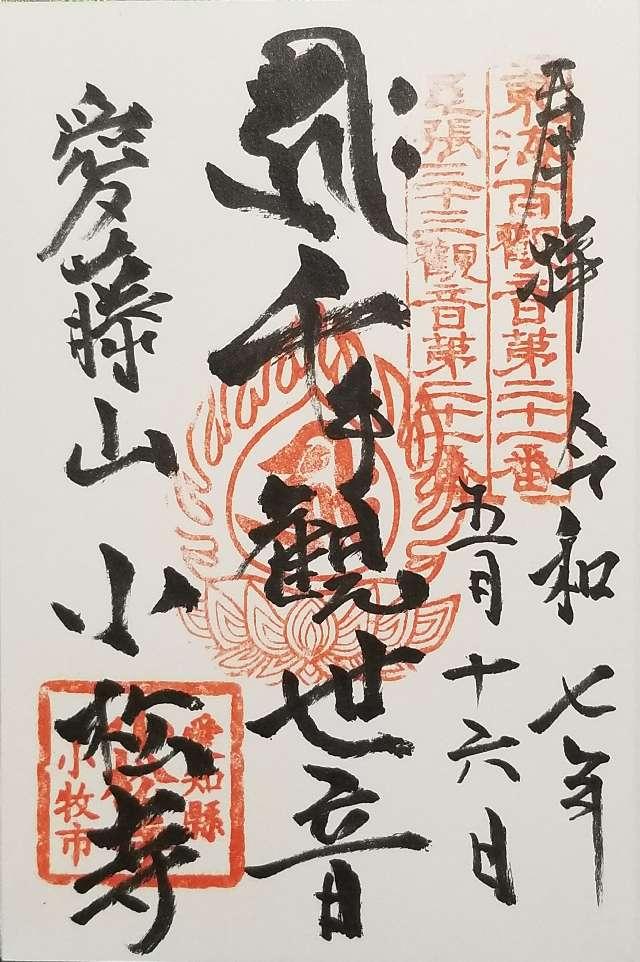 奉拝 令和七年
五月十六日
東海百観音第二十一番
尾張三十三観音第二十一番
千手観世音
愛藤山 小松寺
愛知縣
小牧市